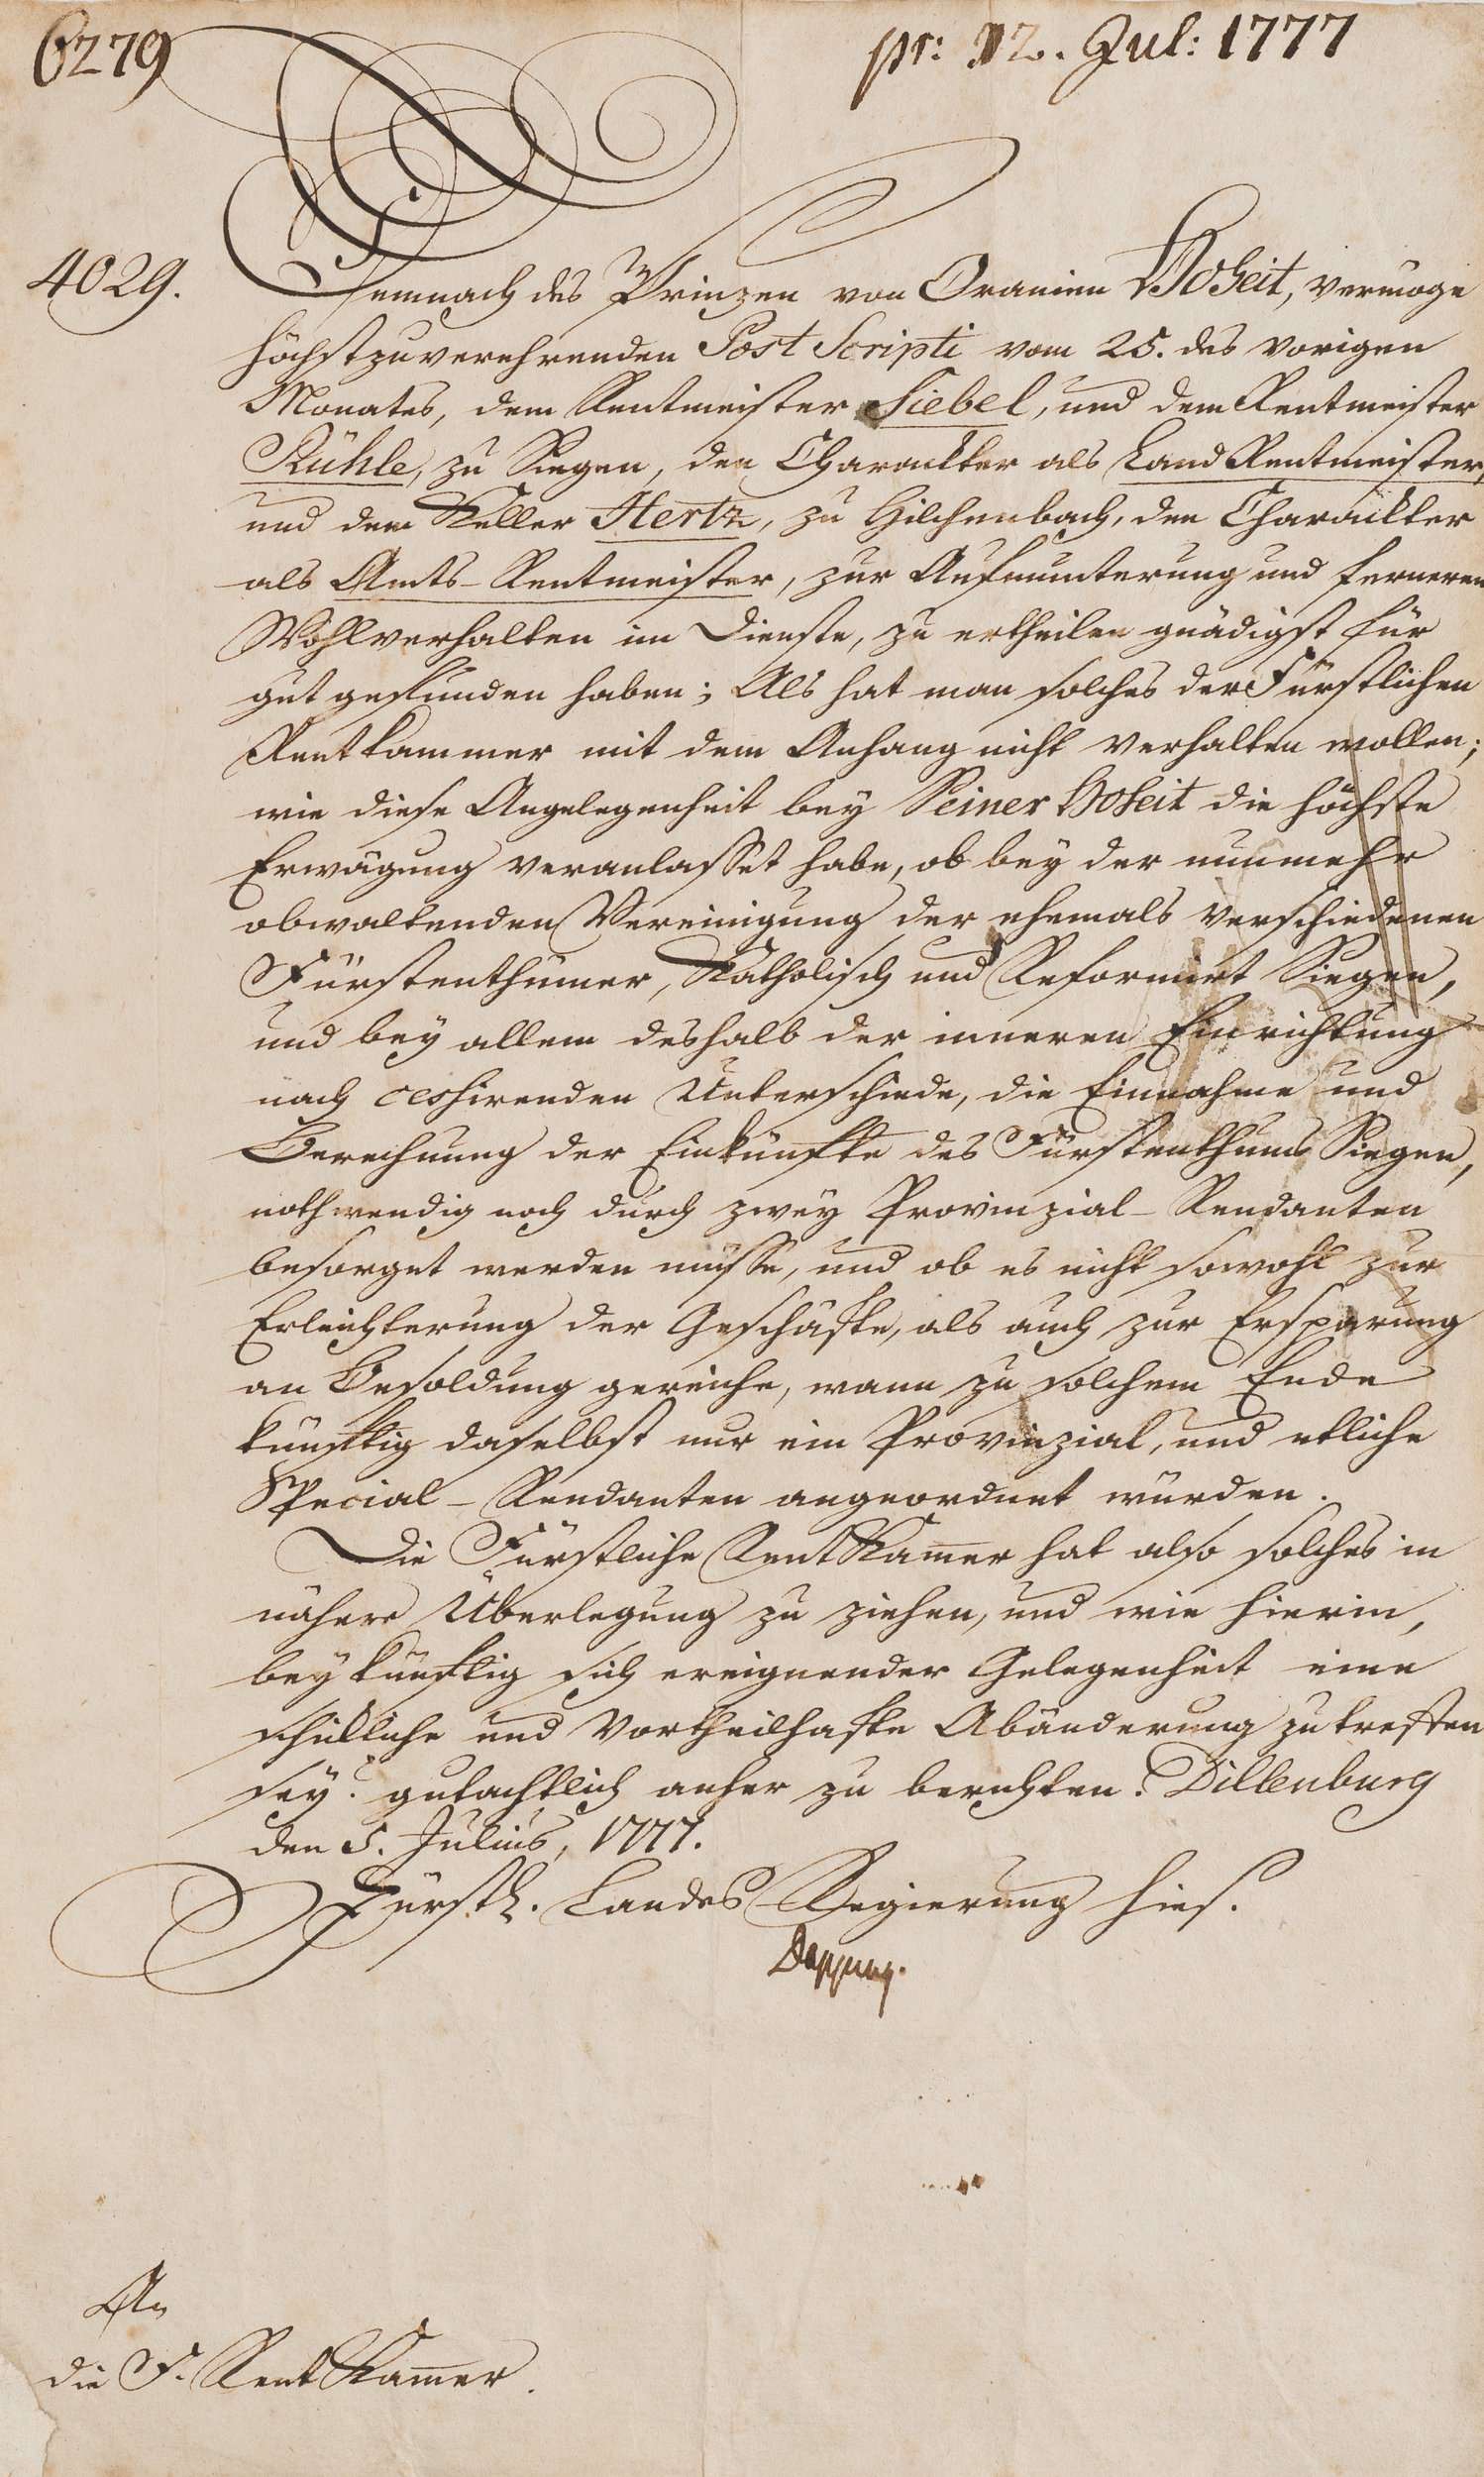 6279
pr: 12. Jul: 1777
4029.
Demnach des Prinzen von Oranien Hoheit, vermoge
höchstzuverehrenden Post Scripti vom 25. des vorigen
Monates, dem Rentmeister Siebel, und dem Rentmeister
Rühle, zu Siegen, den Charackter als Land Rentmeister,
und dem Keller Hertz, zu Hilchenbach, den Charackter
als Amts-Rentmeister, zur Aufmunterung und ferneren
Wohlverhalten im Dienste, zu ertheilen gnädigst für
gut gefunden haben; Als hat man solches der Fürstlichen
Rentkammer mit dem Anhang nicht verhalten wollen;
wie diese Angelegenheit bey Seiner Hoheit die höchste
Erwägung veranlasset habe, ob bey der nunmehr
obwaltenden Vereinigung der ehemals verschiedenen
Fürstenthümer, Katholisch und Reformirt Siegen,
und bey allem deshalb der inneren Einrichtung
nach cessirenden Unterschiede, die Einnahme und
Berechnung der Einkünfte des Fürstenthums Siegen,
nothwendig noch durch zwey Provinzial-Rendanten
besorget werden müsse, und ob es nicht sowohl zur
Erleichterung der Geschäfte, als auch zur Ersparung
an Besoldung gereiche, wann zu solchem Ende
künftig daselbst nur ein Provinzial, und etliche
Special-Rendanten angeordnet würden.
Die Fürstliche RentKam̅er hat also solches in
nähere Überlegung zu ziehen, und wie hierin,
bey künftig sich ereignender Gelegenheit eine
schickliche und vortheilhafte Abänderung zu treffen
sey? gutachtlich anher zu berichten. Dillenburg
den 5. Julius, 1777.
Fürstl. Landes Regierung hies.
An
die F. Rent Kam̅er.